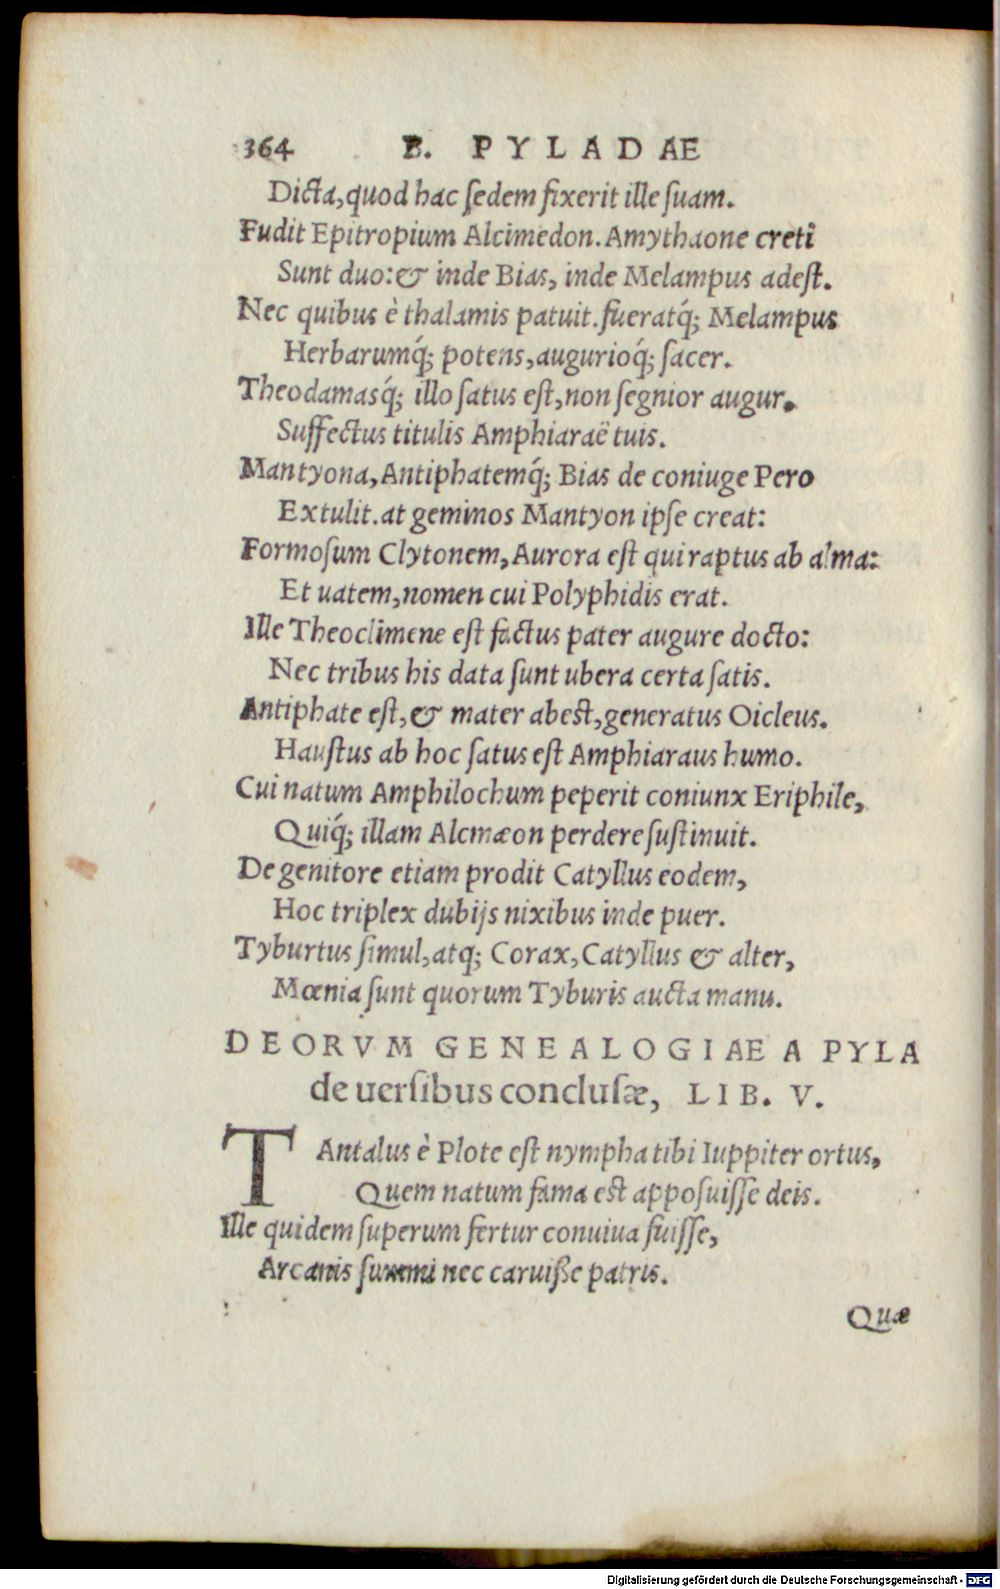 364 B. PYLADAE
Dicta, quod hac ſedem fixerit ille ſuam.
Fudit Epitropium Alcimedon. Amythaone creti
Sunt duo: & inde Bias, inde Melampus adeſt.
Nec quibus è thalamis patuit. fueratq́; Melampus
Herbarumq́; potens, augurioq́; ſacer.
Theodamasq́; illo ſatus eſt, non ſegnior augur.
Suffectus titulis Amphiaraë tuis.
Mantyona, Antiphatemq́; Bias de coniuge Pero
Extulit. at geminos Mantyon ipſe creat:
Formoſum Clytonem, Aurora eſt qui raptus ab alma:
Et uatem, nomen cui Polyphidis erat.
Ille Theoclimene eſt factus pater augure docto:
Nec tribus his data ſunt ubera certa ſatis.
Antiphate eſt, & mater abest, generatus Oicleus.
Hauſtus ab hoc ſatus eſt Amphiaraus humo.
Cui natum Amphilochum peperit coniunx Eriphile,
Quiq́; illam Alcmæon perdere ſuſtinuit.
De genitore etiam prodit Catyllus eodem,
Hoc triplex dubijs nixibus inde puer.
Tyburtus ſimul, atq; Corax, Catyllus & alter,
Mœnia ſunt quorum Tyburis aucta manu.
DEORVM GENEALOGIAE A PYLA
de uerſibus concluſæ, LIB. V.
TAntalus è Plote eſt nympha tibi Iuppiter ortus,
Quem natum fama est appoſuiſſe deis.
Ille quidem ſuperum fertur conuiua fuiſſe,
Arcanis ſummi nec caruiße patris.
Quæ
Digitalisierung gefördert durch die Deutsche Forschungsgemeinschaft - DFG